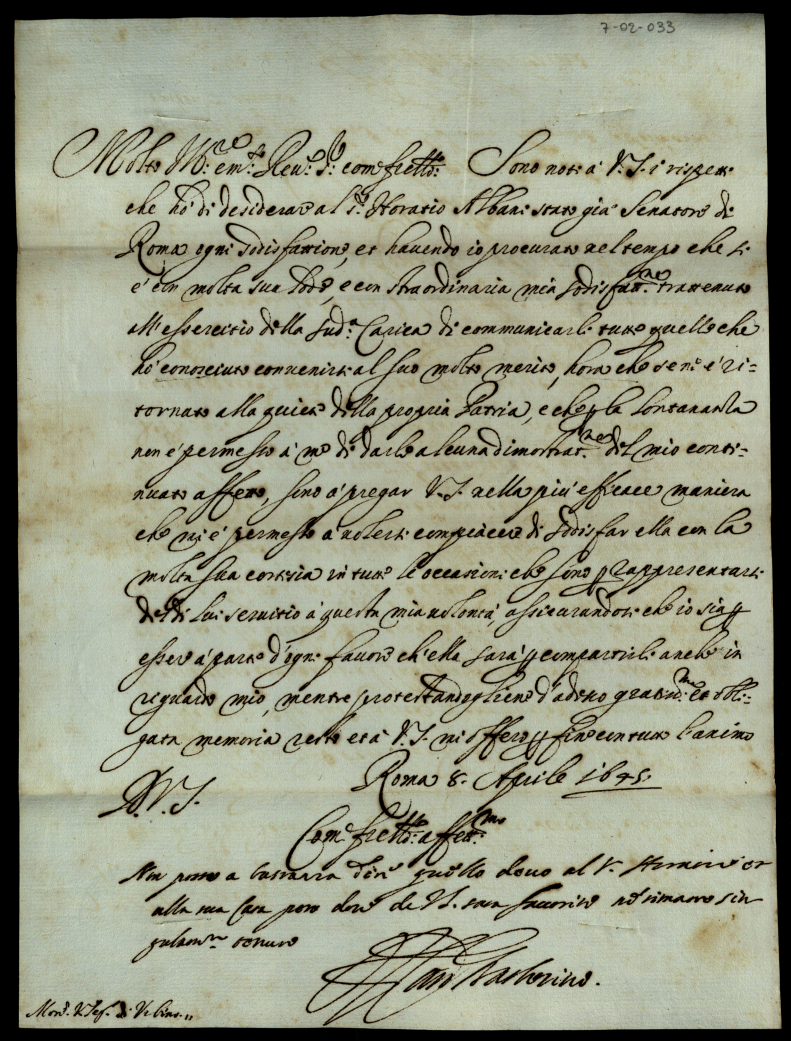 7-02-033
Molto Ill:re em:to Reu:do S:r come fratello: Sono noti à V.S. i rispetti
che hò di desiderar al S:r Horatio Albani stato già Senatore di
Roma ogni sodisfattione, et havendo io procurato nel tempo che si
è con molta sua lode, e con straordinaria mia sodisfatt:ne trattenuto
all'essercitio della sud:a Carica di communicarli tutto quello che
hò conosciuto convenirsi al suo molto merito, hora che se n'è ri-
tornato alla quiete della propria Patria, e che p la lontananza
non è permesso à me di darle alcuna dimostrat:ne del mio conti-
nuato affetto, sono à pregar V.S. nella più efficace maniera
che mi è permesso à volersi compiacer di sodisfar ella con la
molta sua cortesia in tutte le occasioni che sono p rappresentarsi
di lui servitio à questa mia volontà assicurandosi che io sia p
esser à parte d'ogni favore ch'ella sarà p compartirli anche in
riguardo mio, mentre protestandogliene d'adesso grandma et obli-
gata memoria resto et à V.S. mi offero p fine con tutto l'animo
Roma 8. Aprile 1645.
D.V.S.
Come fratello: affett:mo
Non posso a bastanza dire quello devo al S.r et
alla sua Casa pero dove da V.S. sara favorito ne rimarro sin
gularm:te tenuto
Card Barberino.
Mons. Vesc. di Urbino.